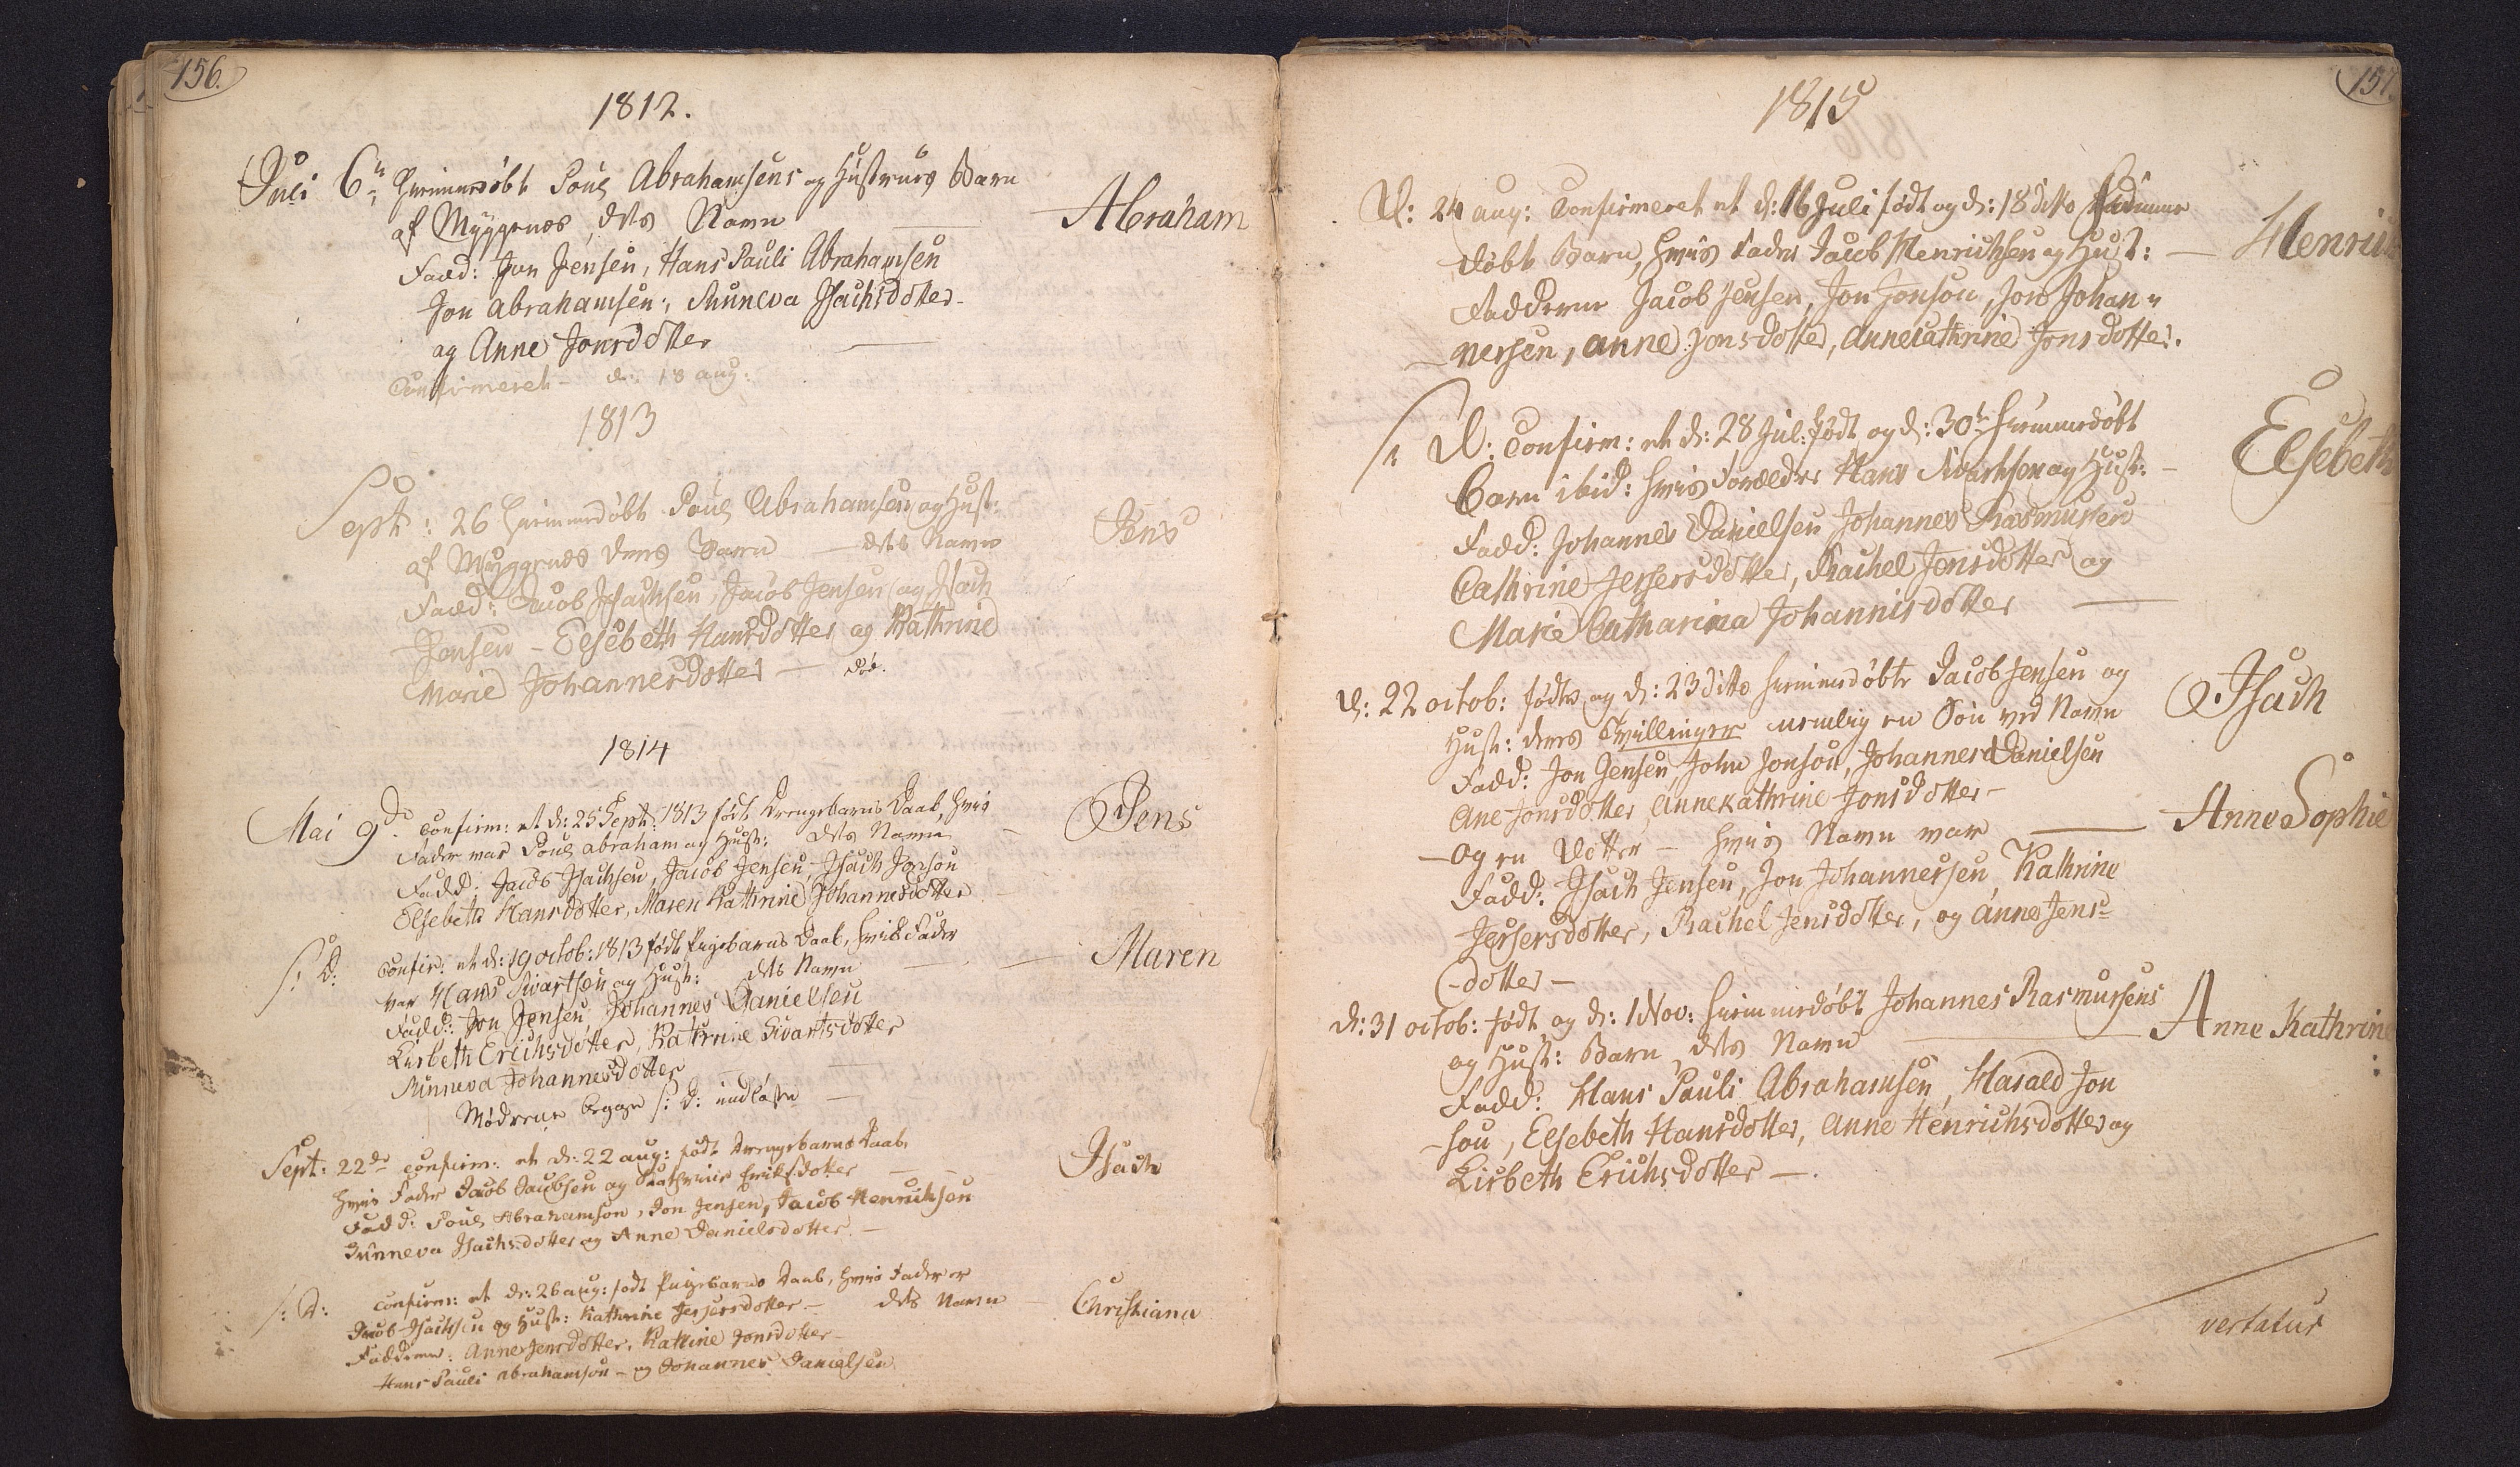 156.
1812.
Juli 6te hiemmedøbt Poul Abrahamsens og Hustrues Barn
af Myggenes, dets Navn — Abraham
Fadd: Jon Jensen, Hans Pauli Abrahamsen
Jon Abrahamsen, Sunneva Isachsdotter
og Anne Jonsdotter
Confirmeret d: 18 aug:
1813
Sept: 26 hiemmedøbt Poul Abrahamsen og Hust:
af Myggenes deres Barn — dets Navn Jens
Fadd: Jacob Isachsen, Jacob Jensen og Isach
Jonsen - Elsebeth Hansdotter og Kathrine
Marie Johannesdotter — død.
1814
Mai 9de confirm: et d: 25 Sept: 1813 født Drengebarns Daab, hvis
Fader var Poul Abraham og Hust: dets Navn — Jens
Fadd: Jacob Isachsen, Jacob Jensen, Isach Jonsen
Elsebeth Hansdotter, Maren Kathrine Johannesdotter
s: D: Confir: et d: 19 octob: 1813 født Pigebarns Daab, hvis Fader
var Hans Sivartsen og Hust: dets Navn — Maren
Fadd: Jon Jensen Johannes Danielsen
Lisbeth Erichsdotter, Kathrine Sivartsdotter
Sunneva Johannesdotter
Mødrene begge s: D: indledte —
Sept: 22de confirm: et d: 22 aug: født Drengebarns Daab,
hvis Fader Jacob Jacobsen og Kathrine Eriksdotter — Isach
Fadd: Poul Abrahamsen, Jon Jensen, Jacob Henrichsen
Sunneva Isachsdotter og Anne Danielsdotter —
s: D: confirm: et d: 26 aug: født Pigebarns Daab, hvis Fader er
Jacob Isachsen og Hust: Kathrine Jespersdotter — dets Navn Christiana
Fadderne: Anne Jensdotter, Kathrine Jonsdotter —
Hans Pauli Abrahamsen - og Johannes Danielsen
157.
1815
D: 24 aug: Confirmeret et d: 16 Juli født og d: 18 dito hiemme
døbt Barn, hvis Fader Jacob Henrichsen og Hust: — Henrich
Fadderne Jacob Jensen, Jon Jonsen, Jon Johan
nesen, Anne Jonsdotter, Annecathrine Jonsdotter.
s. D: Confirm: et d: 28 Jul: født og d: 30te hiemmedøbt
Barn ibid: hvis Forældre Hans Sivartsen og Hust: — Elsebeth
Fadd: Johannes Danielsen Johannes Rasmusen
Cathrine Jespersdotter, Rachel Jensdotter og
Marie Catharina Johannisdotter —
D: 22 octob: fødte og d: 23 dito hiemmedøbte Jacob Jensen og
Hust: deres Tvillinger nemlig en Søn ved Navn Isach
Fadd: Jon Jensen, John Jonson, Johannes Danielsen
Ane Jonsdotter, Annekathrine Jonsdotter —
— og en Dotter — hvis Navn var — Anne Sophie
Fadd: Isach Jensen, Jon Johannessen, Kathrine
Jespersdotter, Rachel Jensdotter, og Anne Jens-
-dotter —
d: 31 octob: født og d: 1 Nov: hiemmedøbt Johannes Rasmussens
og Hust: Barn, dets Navn — Anne Kathrine
Fadd: Hans Pauli Abrahamsen, Harald Jon
-son, Elsebeth Hansdotter, Anne Henrichsdotter og
Lisbeth Erichsdotter —.
vertatur